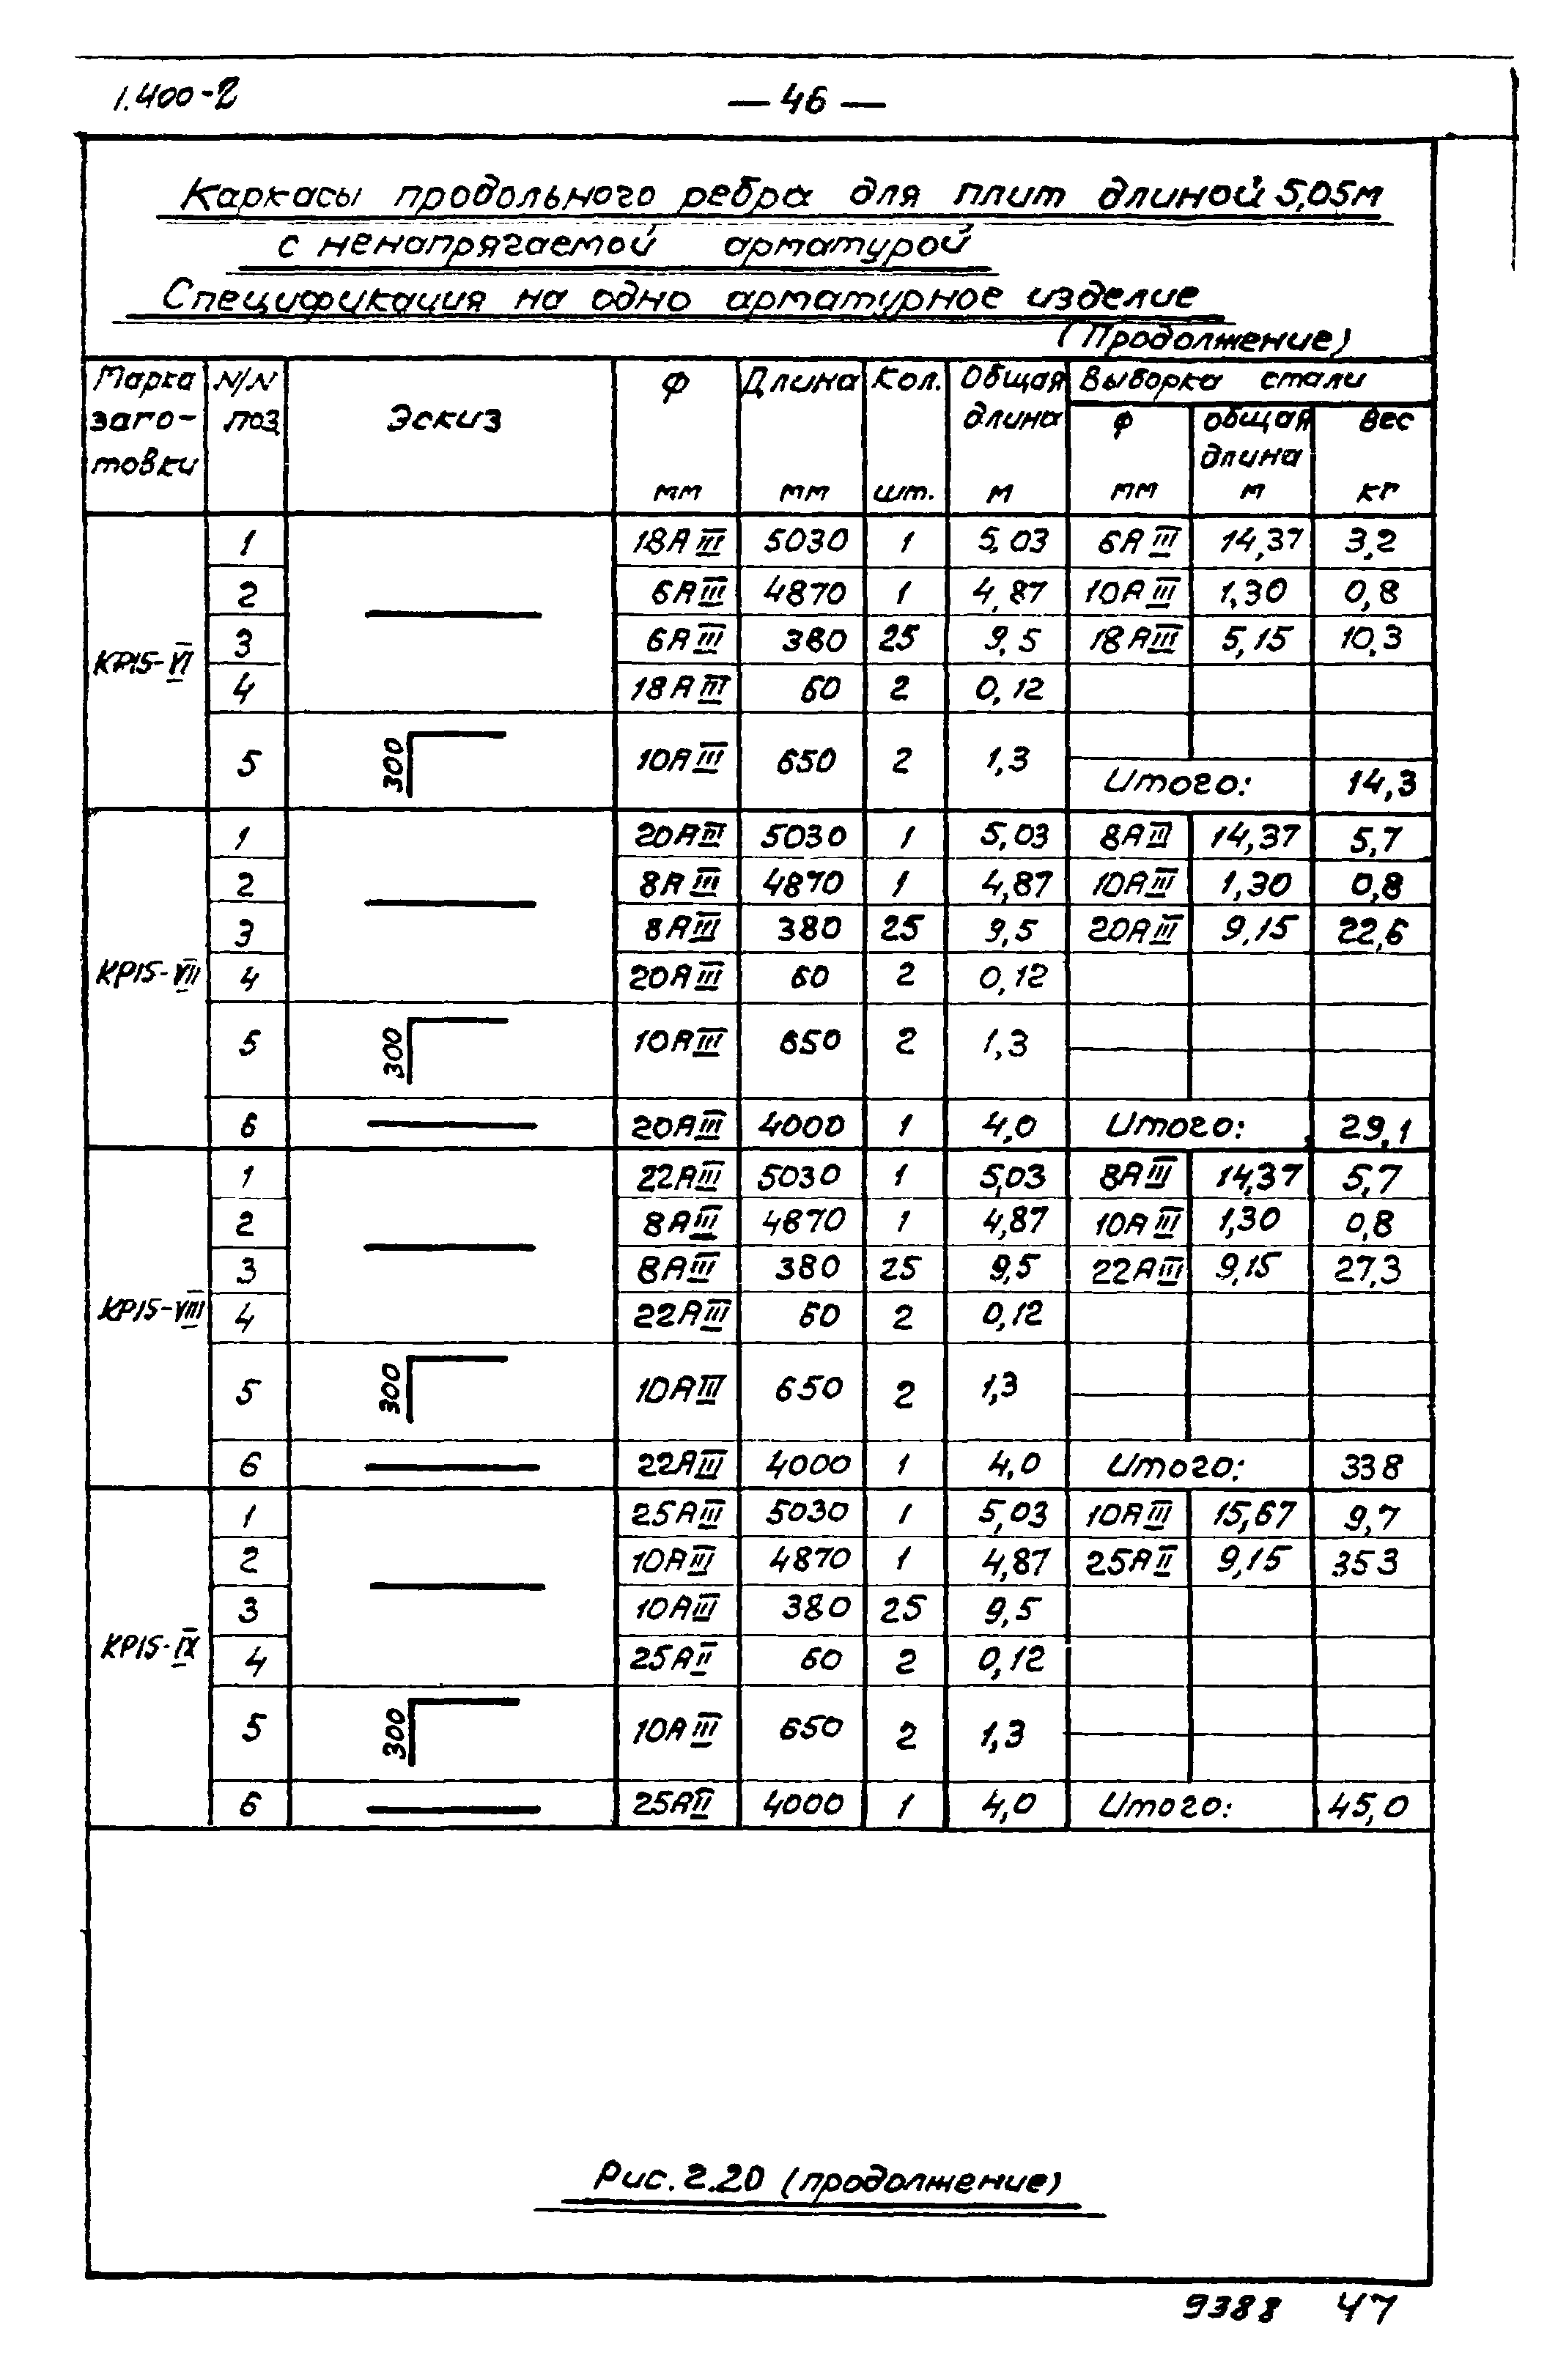 1.400-2
— 46 —
Каркасы продольного ребра для плит длиной 5,05м
с ненапрягаемой арматурой
Спецификация на одно арматурное изделие
(Продолжение)
Марка заготовки N/N поз Эскиз Ф мм Длина мм Кол. шт. Общая длина м Выборка стали
ф мм общая длина м Вес кг
КР15-VI
1 18АIII 5030 1 5,03 6АIII 14,37 3,2
2 6АIII 4870 1 4,87 10АIII 1,30 0,8
3 6АIII 380 25 9,5 18АIII 5,15 10,3
4 18АIII 60 2 0,12
5 300 10АIII 650 2 1,3
Итого: 14,3
КР15-VII
1 20АIII 5030 1 5,03 8АIII 14,37 5,7
2 8АIII 4870 1 4,87 10АIII 1,30 0,8
3 8АIII 380 25 9,5 20АIII 9,15 22,6
4 20АIII 60 2 0,12
5 300 10АIII 650 2 1,3
6 20АIII 4000 1 4,0 Итого: 29,1
КР15-VIII
1 22АIII 5030 1 5,03 8АIII 14,37 5,7
2 8АIII 4870 1 4,87 10АIII 1,30 0,8
3 8АIII 380 25 9,5 22АIII 9,15 27,3
4 22АIII 60 2 0,12
5 300 10АIII 650 2 1,3
6 22АIII 4000 1 4,0 Итого: 338
КР15-IX
1 25АIII 5030 1 5,03 10АIII 15,67 9,7
2 10АIII 4870 1 4,87 25АII 9,15 353
3 10АIII 380 25 9,5
4 25АII 60 2 0,12
5 300 10АIII 650 2 1,3
6 25АII 4000 1 4,0 Итого: 45,0
Рис. 2.20 (продолжение)
9388 47